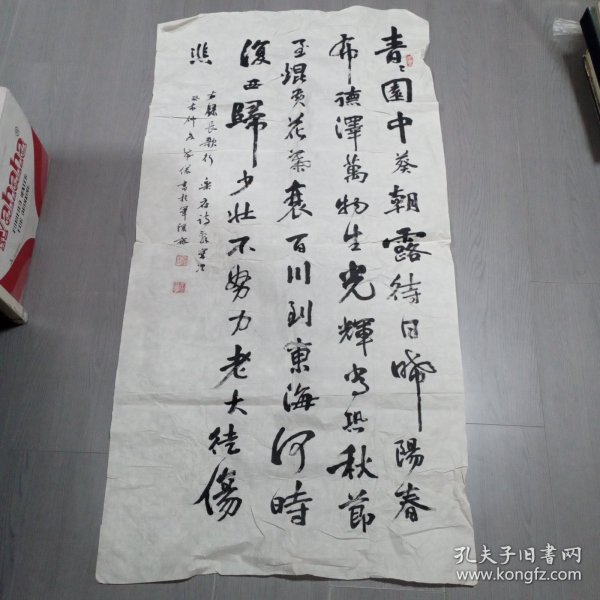 青〻園中葵朝露待日晞陽春
布德澤萬物生光輝常恐秋節
至焜黃花葉衰百川到東海何時
復西歸少壯不努力老大徒傷
悲
右錄長歌行
wahaha
孔夫子旧书网
www.kongfz.com